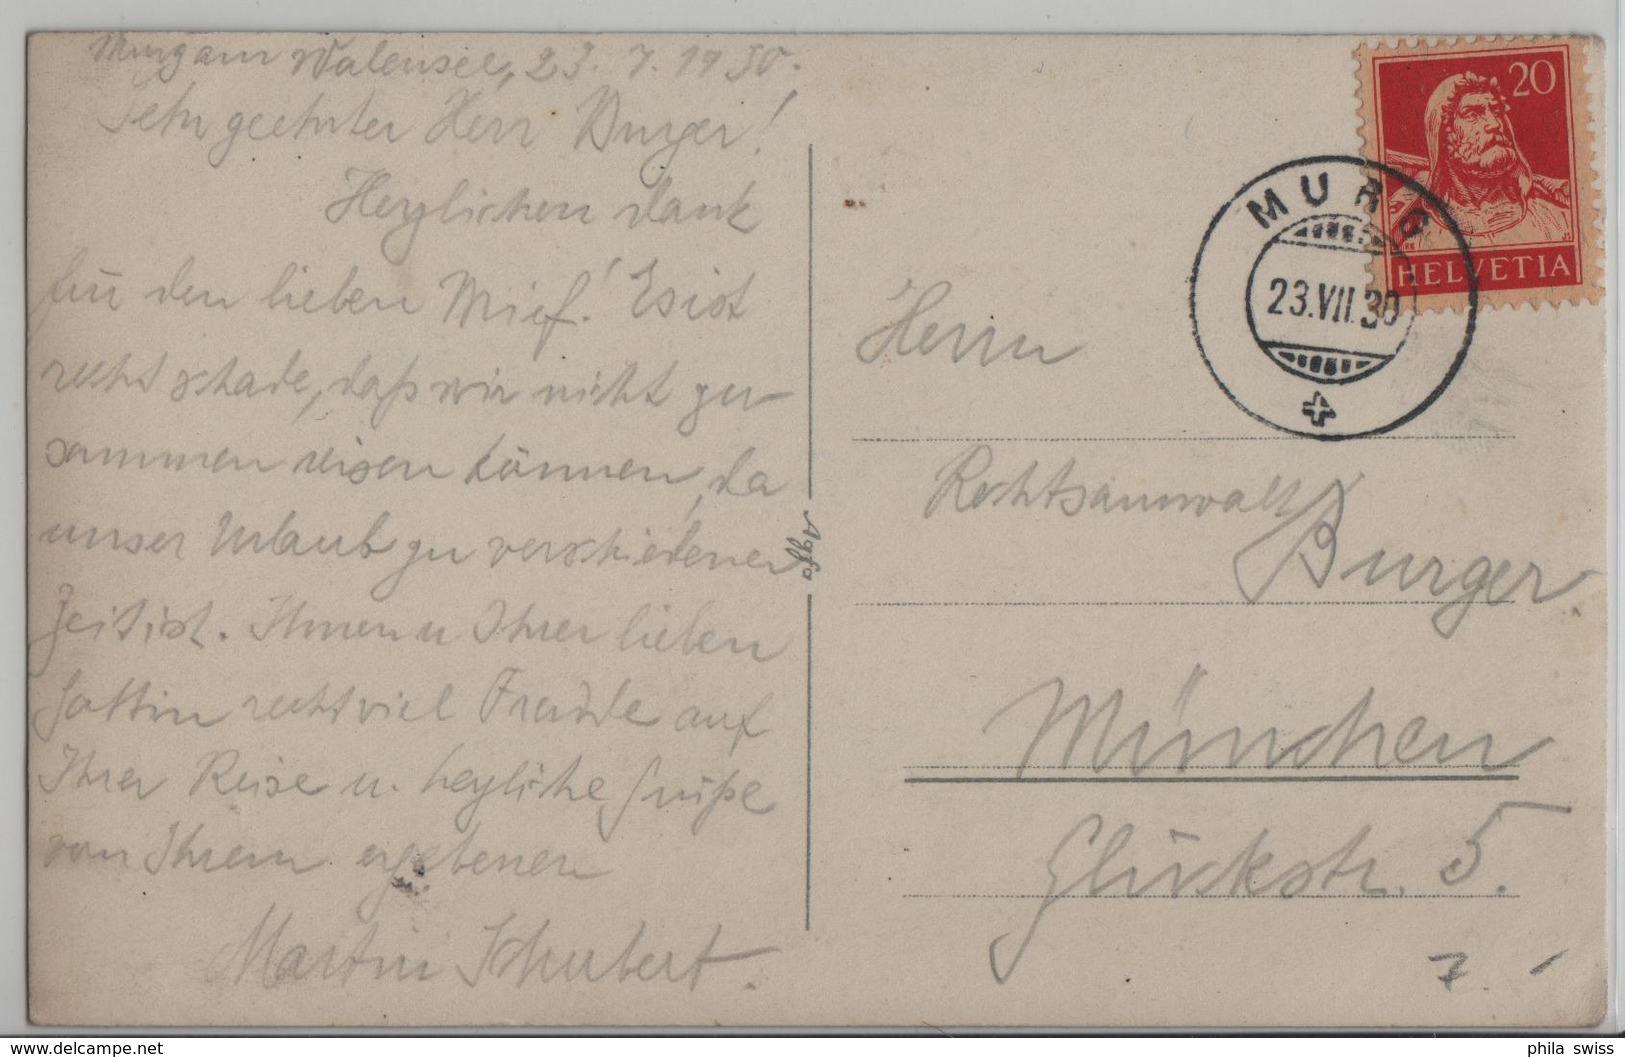 Murg am Walensee, 23. 7. 1930.
Sehr geehrter Herr Burger!
Herzlichen Dank
für den lieben Brief! Es ist
recht schade, daß wir nicht zu-
sammen reisen können, da
unser Urlaub zu verschiedener
Zeit ist. Ihnen u Ihrer lieben
Gattin recht viel Freude auf
Ihrer Reise u. herzliche Grüße
von Ihrem ergebenen
Martin Schubert.
Agfa
20
HELVETIA
MURG
23.VII.30
Herrn
Rechtsanwalt
Burger.
München
Glückstr. 5.
7
delcampe.net
phila swiss